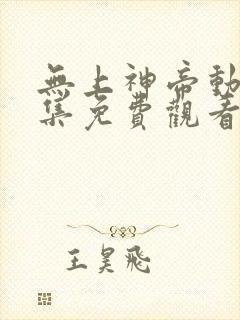 無上神帝動
集免費觀看
王昊飛